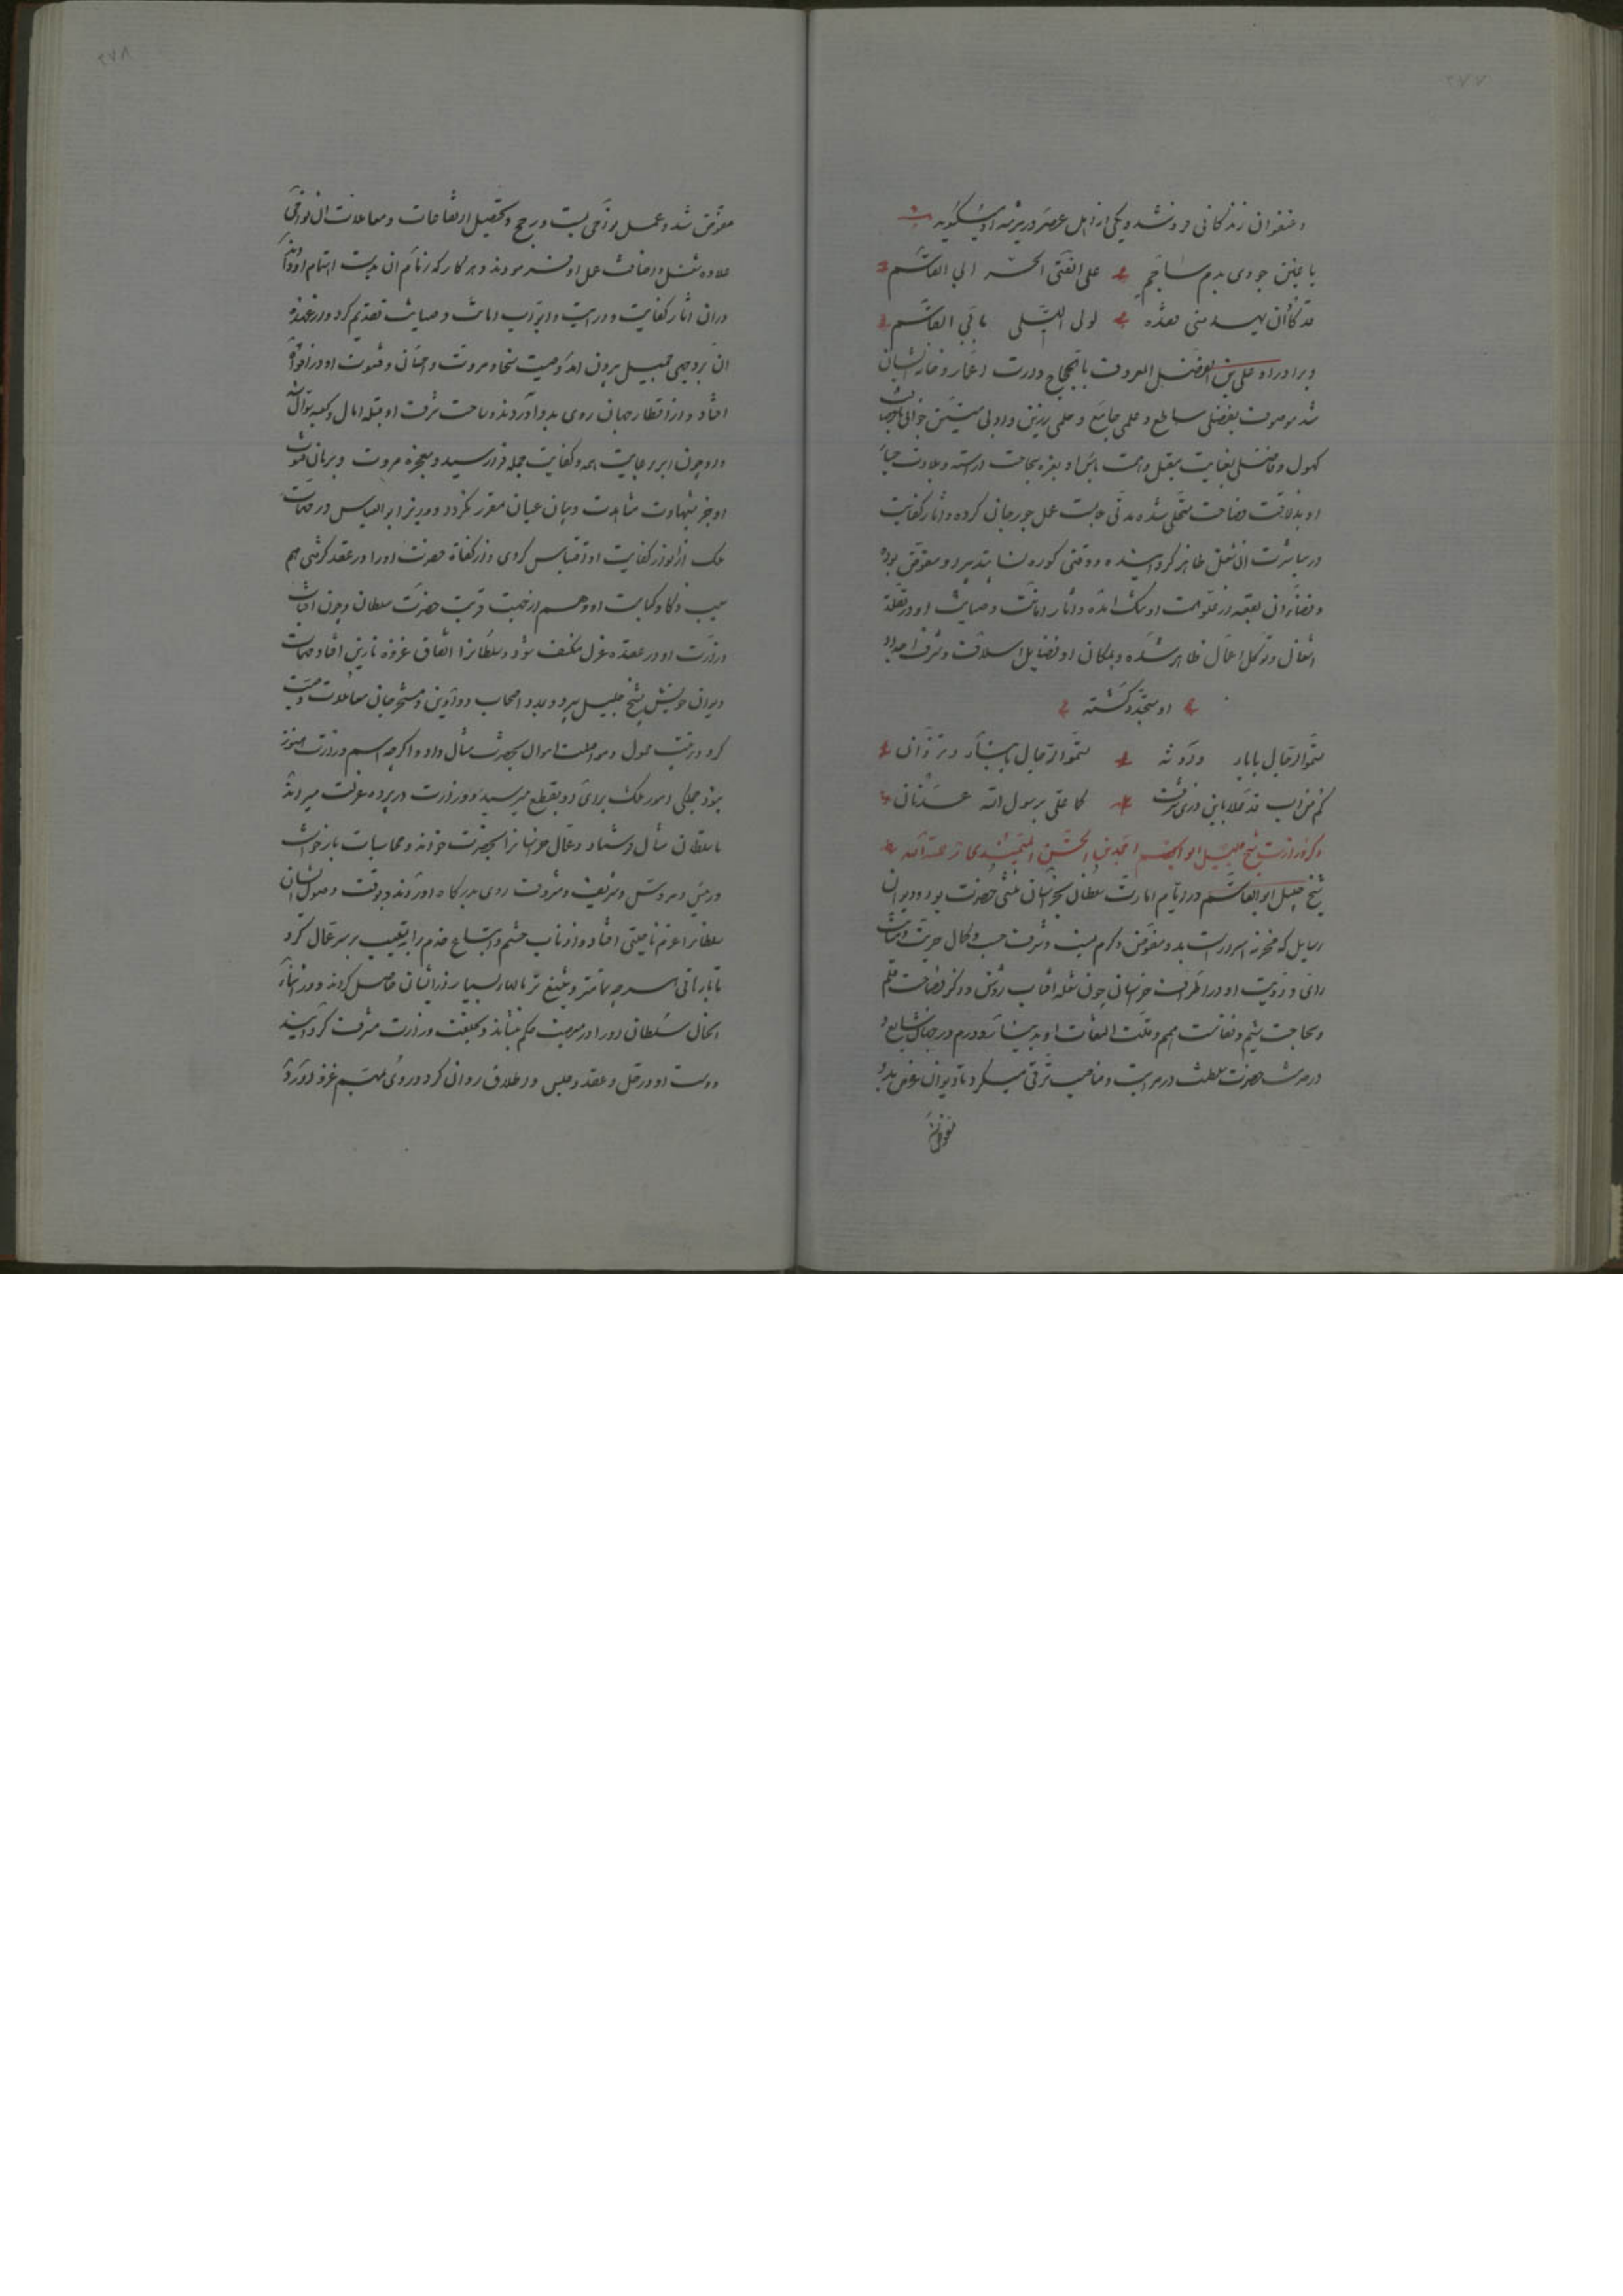 ۲۷۷
و عنفوان زندگانی فرو شد و یکی از اهل عصر در مرثیه او میگوید
یا عین جودی بدم ساجم علی الفتی الحر ابی القاسم
قد کاد ان یهدمنی فقده لولا التسلی بابی القاسم
و برادر او علی بن الفضل المعروف بالحجاج وارث اعمار و خانه ایشان
شد موصوف بفضلی ساطع و علمی جامع و حلمی رزین و رایی متین جوانی
کهول و فاضلی بغایت بعقل
او بذلاقت فصاحت متحلی شده مدتی عمل جورجان کرده و آثار کفایت
در مباشرت آن شغل ظاهر گردانیده و وقتی کوره نسا بتدبیر او مفوض بوده
و فضای آن بقعه از علو همت او تنگ آمده و آثار امانت و صیانت او در تقلد
اشغال و توکل اعمال ظاهر شده و بمکان او فضایل اسلاف و شرف اجداد
او متجدد گشته
سموا الرجال بآباء و سموا الرجال بابناء و تزدان
کم من اب قد علا بابن ذری شرف کما علی برسول الله عدنان
ذکر وزارت شیخ جلیل ابو القسم احمد بن الحسن المیمندی رحمة الله
شیخ جلیل ابو القاسم در ایام امارت سلطان بخراسان منشی حضرت بود و دیوان
رسایل که مخزن اسرارست بدو مفوض و کرم و شرف حسب و کمال حریت و متانت
رای و رویت او در اطراف خراسان چون شعله آفتاب روشن و ذکر فصاحت قلم
و سجاحت شیم و نفاست همم و قلت التفات او بدینار و درم در جهان شایع و
در خدمت حضرت سلطنت در مراتب و مناصب ترقی میکرد تا دیوان عرض بدو
مفوض شد
۲۷۸
مفوض شد و عمل نواحی بست و رخج و تحصیل ارتفاعات و معاملات آن نواحی
علاوه شغل و اضافت عمل او فرمودند و هر کار که زمام آن بدست اهتمام او دادند
در آن آثار کفایت و درایت و ابواب امانت و صیانت تقدیم کرد و از عهده
آن بر وجهی جمیل بیرون آمد و صیت سخا و مروت و احسان و فتوت او در افواه
افتاد و از اقطار جهان روی بدو آوردند و ساحت شرف او قبله آمال و کعبه سؤال شد
و او چون ابر برعایت همه و کفایت جمله فرا رسید و معجزه مروت و برهان فتوت
او جز بشهادت مشاهدت و بیان عیان مقرر نگردد و وزیر ابو العباس در مهمات
ملک از انوار کفایت او اقتباس کردی و از کفاة حضرت او را در عقد گرفتی هم
بسبب ذکا و کیاست او و هم از جهت قربت حضرت سلطان و چون آفتاب
وزارت او در عقده عزل منکسف شد و سلطان را اتفاق غزوه نارین افتاد مهمات
دیوان خویش بشیخ جلیل سپرد و بدو اصحاب دواوین و مستخرجان معاملات وصیت
کرد و حمول و مواصلت اموال بحضرت مثال داد و اگرچه اسم وزارت هنوز
نبود جملگی امور ملک برای او بقطع میرسید و وزارت در پرده عزلت میراند
تا سلطان مثال فرستاد و عمال خراسان را بحضرت خواند و محاسبات باز خواست
و رئیس و مرؤس و شریف و مشروف روی بدرگاه آوردند و بوقت وصول ایشان
سلطان را عزم ناحیتی افتاد و از ناب حشم و اتباع خدم را بر سر عمال کرد
تا مالها بسیار از ایشان حاصل کردند و در اثناء
آنحال سلطان او را در مرتبت حکم بنشاند و بخلعت وزارت مشرف گردانید
و دست او در حل و عقد و حبس و اطلاق روان کرد و روی بمهم غزو آورد